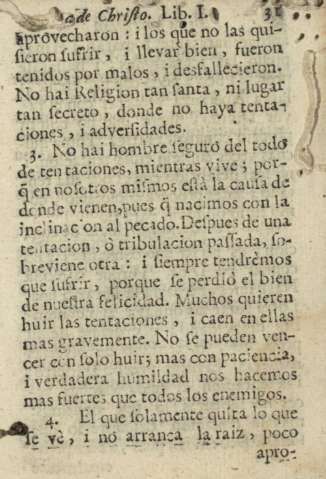 de Christo. Lib. I. 31
aprovecharon : i los que no las qui-
sieron sufrir , i llevar bien , fueron
tenidos por malos, i desfallecieron.
No hai Religion tan santa , ni lugar
tan secreto , donde no haya tenta-
ciones , i adversidades.
3. No hai hombre seguro del todo
de tentaciones, mientras vive ; por-
q̃ en nosotros mismos està la causa de
donde vienen,pues q̃ nacimos con la
inclinacion al pecado.Despues de una
tentacion, ò tribulacion passada, so-
breviene otra : i siempre tendrèmos
que sufrir, porque se perdiò el bien
de nuestra felicidad. Muchos quieren
huir las tentaciones , i caen en ellas
mas gravemente. No se pueden ven-
cer con solo huir; mas con paciencia,
i verdadera humildad nos hacemos
mas fuertes que todos los enemigos.
4. El que solamente quita lo que
se vè, i no arranca la raiz, poco
apro-